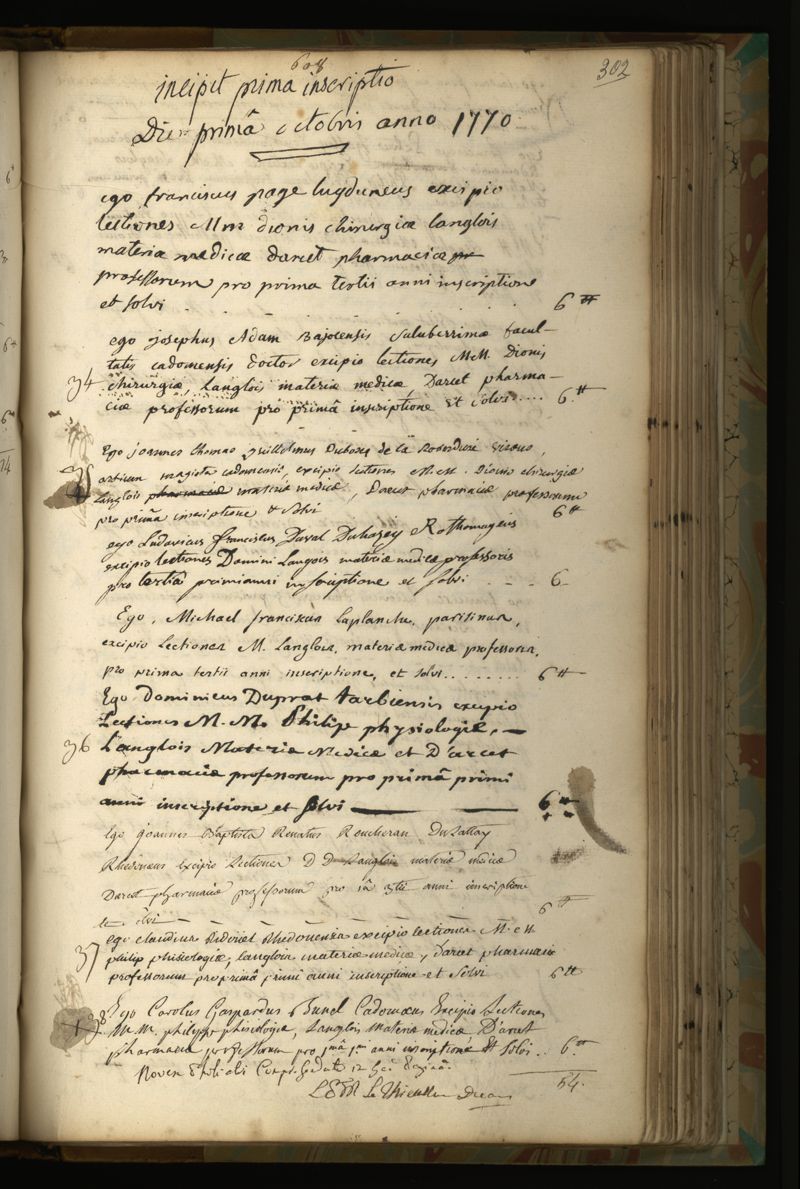 608
302
incipit prima inscriptio
Die primâ octobris anno 1770
ego franciscus page lugduneus excipio
lectiones Mm dionis chirurgiæ langlois
materiæ medicæ darcet pharmaciæ
professorum pro prima tertii anni inscriptione
et solvi 6 ₶
ego josephus Adam Bajocensis saluberrimæ facul-
tatis cadomensis doctor excipio lectiones MM Dionis
34 chirurgiæ, langlois materiæ medicæ, Darcet pharma-
ciæ professorum pro primâ inscriptione et solvi.... 6 ₶
Ego joannes thomas guillelmus Dubosq de la
artium magister cadomensis, excipio lectiones M.M. Dionis chirurgiæ
35 langlois pharmaciæ materiæ medicæ, Darcet pharmaciæ professorum
pro primâ inscriptione & solvi 6 ₶
ego Ludovicus franciscus Duval Duhazey Rothomageus
excipio lectiones Domini Langois materiæ medicæ professoris
pro tertiâ primi anni inscriptione et solvi - - - 6
Ego, Michael franciscus Laplanche, parisinus,
excipio Lectiones M. Langlois, materiæ medicæ professoris,
pro prima tertii anni inscriptione, et solvi......... 6 ₶
Ego Dominicus Duprat tarbiensis excipio
Lectiones M.M. Philip physiologiæ,
36 Langlois Materiæ Medicæ et D'arcet
pharmaciæ professorum pro primâ primi
anni inscriptione et solvi 6 ₶
Ego joannes Baptista Renatus
Rhedonæus excipio Lectiones D D Langlois materiæ medicæ
Darcet pharmaciæ professorum pro 1â 3tii anni inscriptione
et solvi 6 ₶
ego claudius Rhedonensis excipio lectiones M. M
philip phisiologiæ, langlois materiæ medicæ, darcet pharmaciæ
37 professorum pro primâ primi anni inscriptione et solvi 6 ₶
Ego Carolus Gaspardus Bunel Cadomæus Excipio Lectiones
38 M.M. philippe phisiologiæ, Langlois Materiæ medicæ D'arcet
pharmaciæ professorum pro anni inscriptione et solvi.. 6 ₶
54.
Le Thieullier Decanus